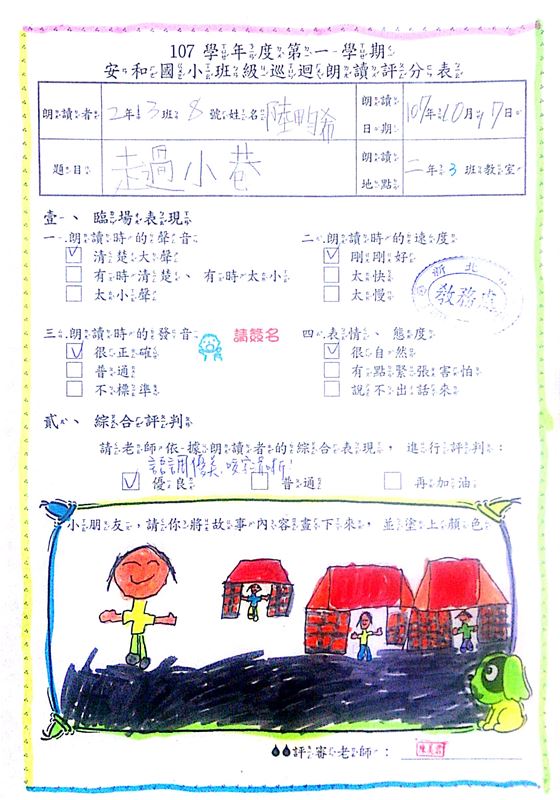 107 學年度第一學期
安和國小班級巡迴朗讀評分表
朗讀者 2年3班8號姓名 陸昀希 朗讀日期 107年10月17日
題目 走過小巷 朗讀地點 二年3班教室
壹、臨場表現
一、朗讀時的聲音 二、朗讀時的速度
清楚大聲 剛剛好
有時清楚、有時太小 太快
太小聲 太慢
新北
教務處
三、朗讀時的發音 請簽名 四、表情、態度
很正確 很自然
普通 有點緊張害怕
不標準 說不出話來
貳、綜合評判
請老師依據朗讀者的綜合表現,進行評判:
語調優美,咬字清晰!
優良 普通 再加油
小朋友,請你將故事內容畫下來,並塗上顏色
評審老師: